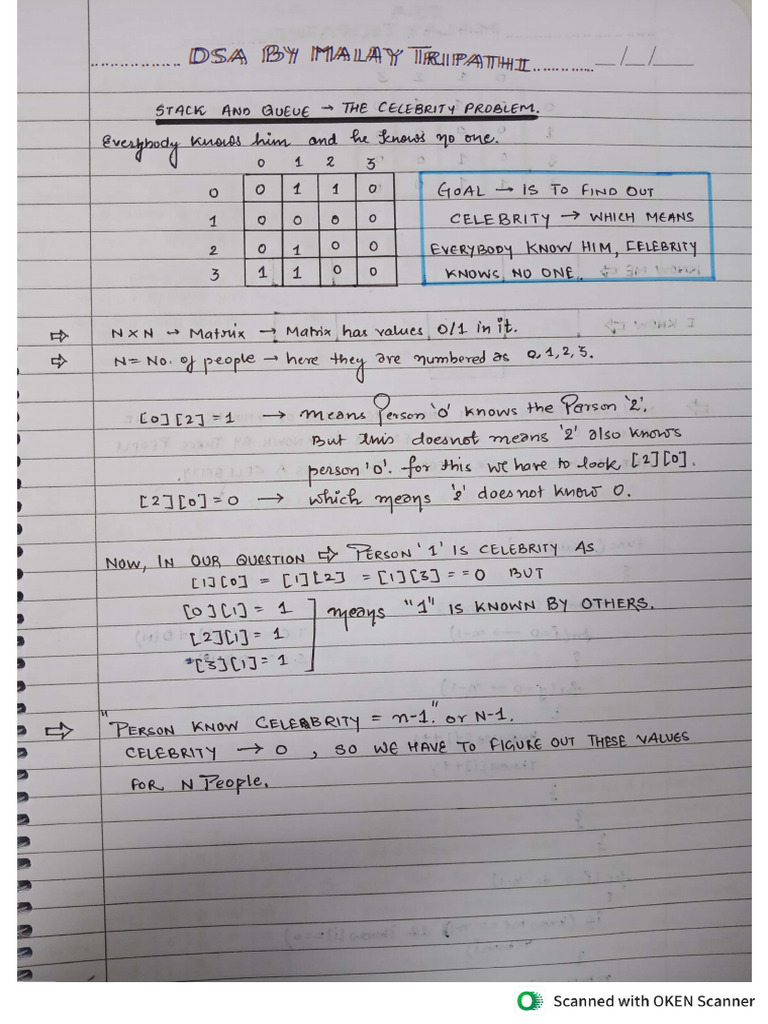 DSA BY MALAY TRIPATHI __/__/__
STACK AND QUEUE → THE CELEBRITY PROBLEM.
Everybody knows him and he knows no one.
0 1 2 3
0 0 1 1 0
1 0 0 0 0
2 0 1 0 0
3 1 1 0 0
GOAL → IS TO FIND OUT
CELEBRITY → WHICH MEANS
EVERYBODY KNOW HIM, CELEBRITY
KNOWS NO ONE.
⇨ N×N → Matrix → Matrix has values 0/1 in it.
⇨ N = No. of people → here they are numbered as 0,1,2,3.
[0][2]=1 → means Person '0' knows the Person '2'.
But this doesnot means '2' also knows
person '0'. for this we have to look [2][0].
[2][0]=0 → which means '2' doesnot know 0.
NOW, IN OUR QUESTION ⇨ PERSON '1' IS CELEBRITY AS
[1][0] = [1][2] = [1][3] == 0 BUT
[0][1] = 1
[2][1] = 1
[3][1] = 1
means "1" IS KNOWN BY OTHERS.
⇨ "PERSON KNOW CELEBRITY = n-1." or N-1.
CELEBRITY → 0, SO WE HAVE TO FIGURE OUT THESE VALUES
FOR N People.
Scanned with OKEN Scanner